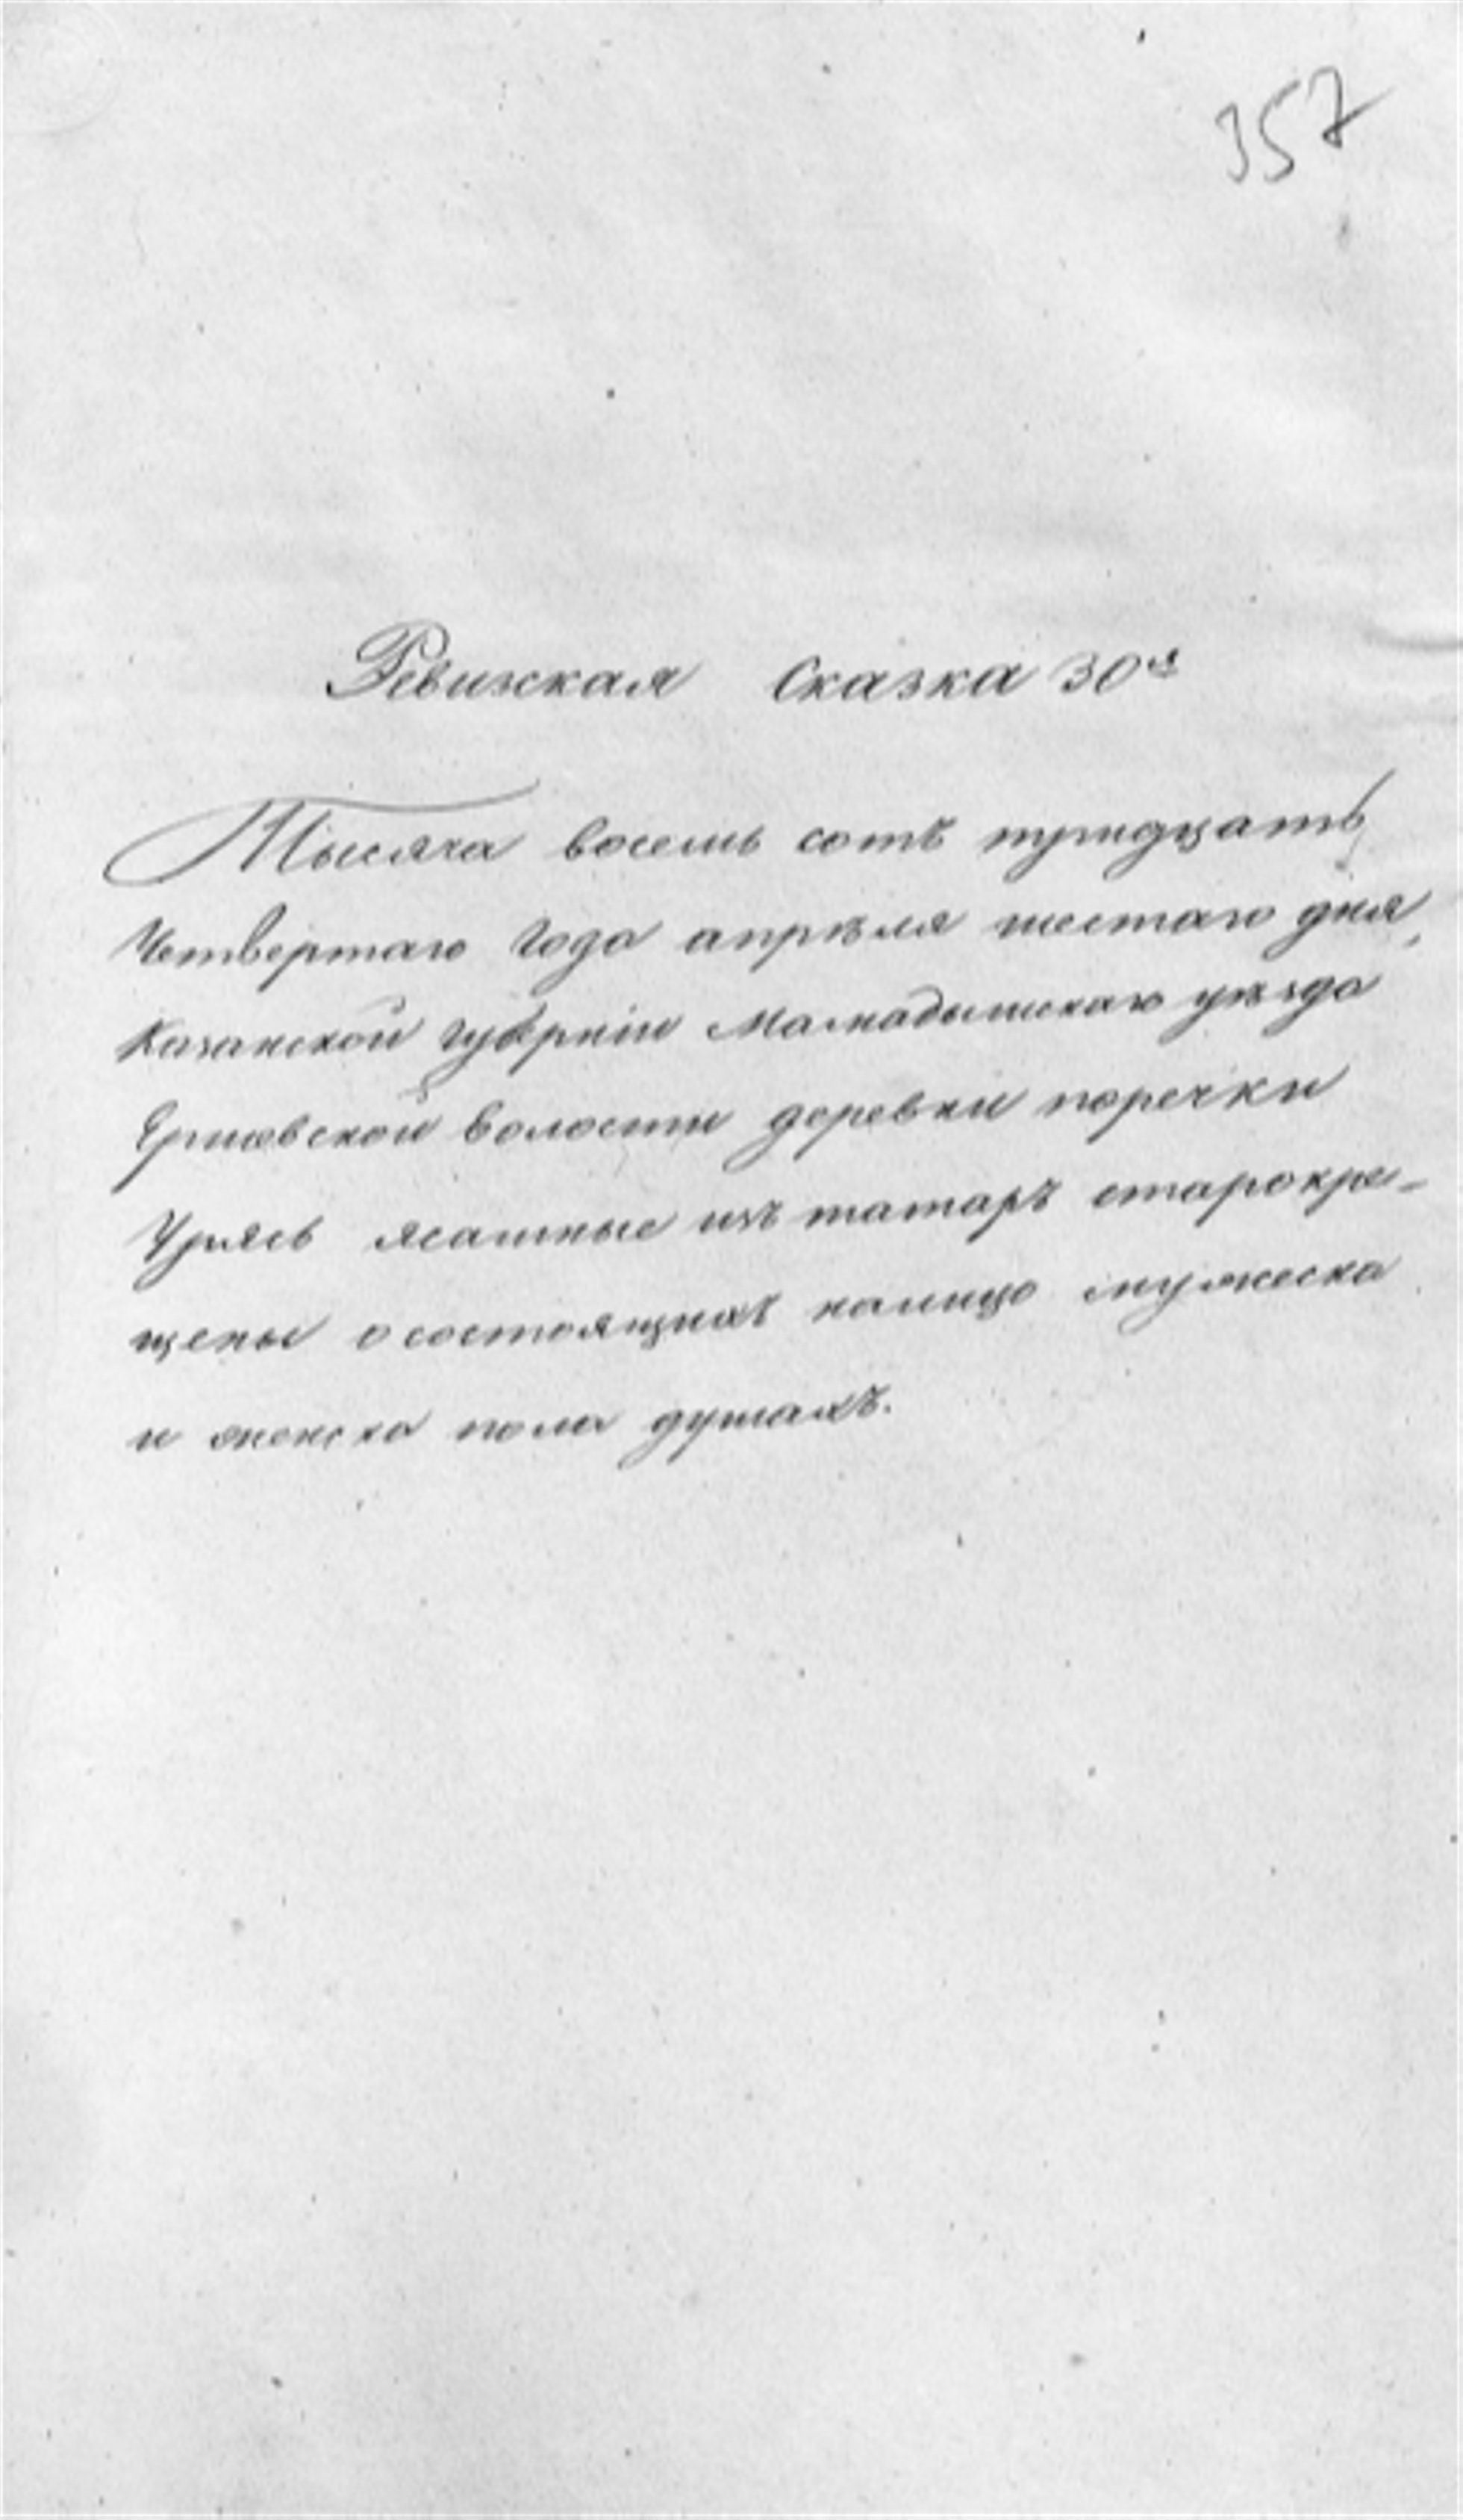 357
Ревизкая Сказка 30я
Тысяча восемь сотъ тридцать
Четвертаго Года апрѣля шестаго дня,
Казанской губерніи Мамадышскаго уѣзда
Ершовской волости деревни поречки
Урясь ясашные изъ татаръ старокре-
щены о состоящихъ налицо мужеска
и женска пола душахъ.